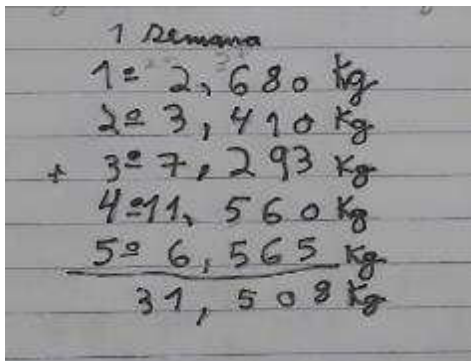 1 semana
1º 2,680 Kg
2º 3,410 Kg
+ 3º 7,293 Kg
4º 11,560 Kg
5º 6,565 Kg
31,508 Kg